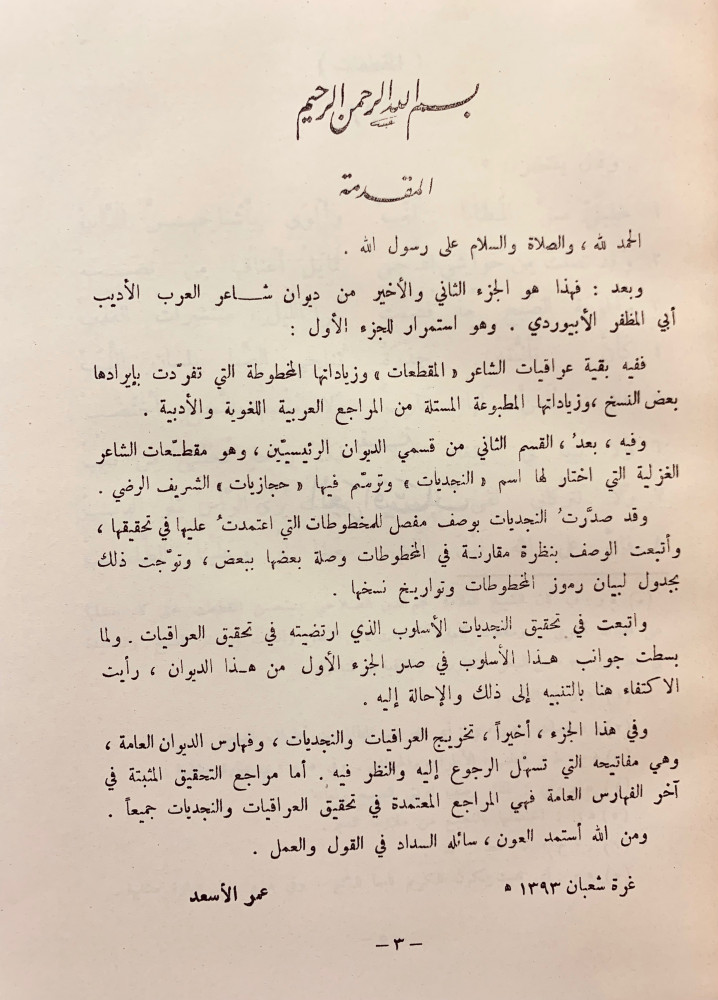 بسم الله الرحمن الرحيم
المقدمة
الحمد لله ، والصلاة والسلام على رسول الله .
وبعد : فهذا هو الجزء الثاني والأخير من ديوان شاعر العرب الأديب
أبي المظفر الأبيوردي . وهو استمرار للجزء الأول :
ففيه بقية عراقيات الشاعر « المقطعات » وزياداتها المخطوطة التي تفرّدت بإيرادها
بعض النسخ ، وزياداتها المطبوعة المستلة من المراجع العربية اللغوية والأدبية .
وفيه ، بعدُ ، القسم الثاني من قسمي الديوان الرئيسيّين ، وهو مقطّعات الشاعر
الغزلية التي اختار لها اسم « النجديات » وترسّم فيها « حجازيات » الشريف الرضي .
وقد صدَّرتُ النجديات بوصف مفصل للمخطوطات التي اعتمدتُ عليها في تحقيقها ،
وأتبعت الوصف بنظرة مقارنة في المخطوطات وصلة بعضها ببعض ، وتوّجت ذلك
بجدول لبيان رموز المخطوطات وتواريخ نسخها .
واتبعت في تحقيق النجديات الأسلوب الذي ارتضيته في تحقيق العراقيات . ولما
بسطت جوانب هذا الأسلوب في صدر الجزء الأول من هذا الديوان ، رأيت
الاكتفاء هنا بالتنبيه إلى ذلك والإحالة إليه .
وفي هذا الجزء ، أخيراً ، تخريج العراقيات والنجديات ، وفهارس الديوان العامة ،
وهي مفاتيحه التي تسهّل الرجوع إليه والنظر فيه . أما مراجع التحقيق المثبتة في
آخر الفهارس العامة فهي المراجع المعتمدة في تحقيق العراقيات والنجديات جميعاً .
ومن الله أستمد العون ، سائله السداد في القول والعمل .
غرة شعبان ١٣٩٣ ه
عمر الأسعد
– ٣ –